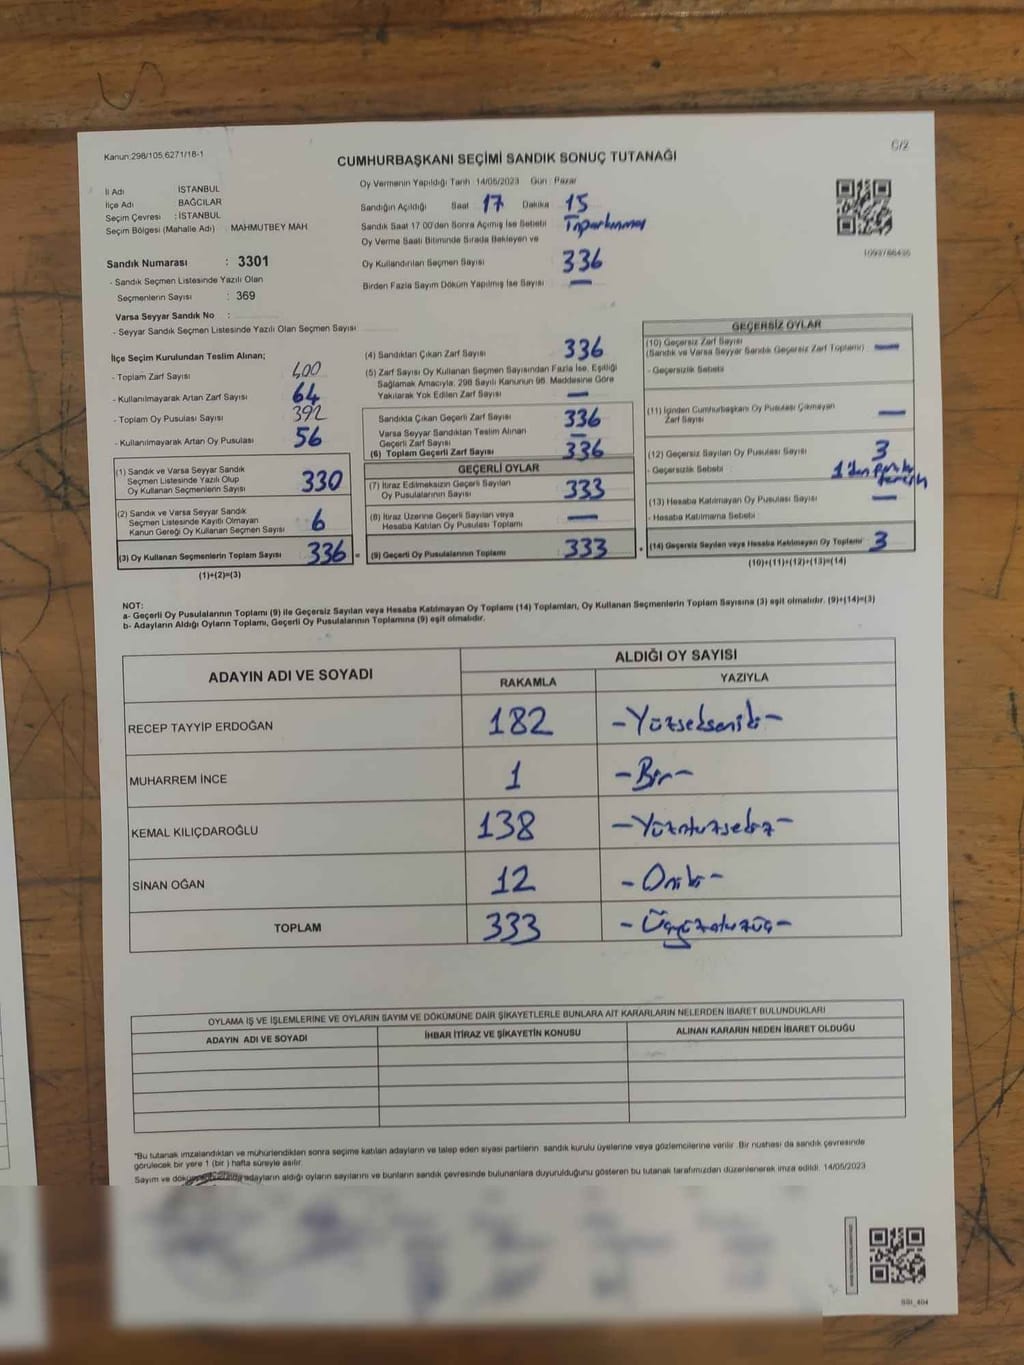 Kanun:298/105,6271/18-1
C/2
CUMHURBAŞKANI SEÇİMİ SANDIK SONUÇ TUTANAĞI
İl Adı İSTANBUL
İlçe Adı BAĞCILAR
Seçim Çevresi : İSTANBUL
Seçim Bölgesi (Mahalle Adı) : MAHMUTBEY MAH.
Sandık Numarası : 3301
- Sandık Seçmen Listesinde Yazılı Olan
Seçmenlerin Sayısı : 369
Varsa Seyyar Sandık No :
- Seyyar Sandık Listesinde Yazılı Olan Seçmen Sayısı
Oy Vermenin Yapıldığı Tarih : 14/05/2023 Gün : Pazar
Sandığın Açıldığı Saat 17 Dakika 15
Sandık Saat 17:00'den Sonra Açılmış İse Sebebi
Oy Verme Saati Bitiminde Sırada Bekleyen ve
Oy Kullandırılan Seçmen Sayısı 336
Birden Fazla Sayım Döküm Yapılmış İse Sayısı —
İlçe Seçim Kurulundan Teslim Alınan;
- Toplam Zarf Sayısı 400
- Kullanılmayarak Artan Zarf Sayısı 64
- Toplam Oy Pusulası Sayısı 392
- Kullanılmayarak Artan Oy Pusulası 56
(1) Sandık ve Varsa Seyyar Sandık
Seçmen Listesinde Yazılı Olup
Oy Kullanan Seçmenlerin Sayısı 330
(2) Sandık ve Varsa Seyyar Sandık
Seçmen Listesinde Kayıtlı Olmayan
Kanun Gereği Oy Kullanan Seçmen Sayısı 6
(3) Oy Kullanan Seçmenlerin Toplam Sayısı 336 =
(1)+(2)=(3)
(4) Sandıktan Çıkan Zarf Sayısı 336
(5) Zarf Sayısı Oy Kullanan Seçmen Sayısından Fazla İse, Eşitliği
Sağlamak Amacıyla, 298 Sayılı Kanunun 98. Maddesine Göre
Yakılarak Yok Edilen Zarf Sayısı —
Sandıkta Çıkan Geçerli Zarf Sayısı 336
Varsa Seyyar Sandıktan Teslim Alınan
Geçerli Zarf Sayısı —
(6) Toplam Geçerli Zarf Sayısı 336
GEÇERLİ OYLAR
(7) İtiraz Edilmeksizin Geçerli Sayılan
Oy Pusulalarının Sayısı 333
(8) İtiraz Üzerine Geçerli Sayılan veya
Hesaba Katılan Oy Pusulası Toplamı —
(9) Geçerli Oy Pusulalarının Toplamı 333
GEÇERSİZ OYLAR
(10) Geçersiz Zarf Sayısı
(Sandık ve Varsa Seyyar Sandık Geçersiz Zarf Toplamı) —
- Geçersizlik Sebebi
(11) İçinden Cumhurbaşkanı Oy Pusulası Çıkmayan
Zarf Sayısı —
(12) Geçersiz Sayılan Oy Pusulası Sayısı 3
- Geçersizlik Sebebi 1'den
(13) Hesaba Katılmayan Oy Pusulası Sayısı —
- Hesaba Katılmama Sebebi
(14) Geçersiz Sayılan veya Hesaba Katılmayan Oy Toplamı 3
(10)+(11)+(12)+(13)=(14)
NOT:
a- Geçerli Oy Pusulalarının Toplamı (9) ile Geçersiz Sayılan veya Hesaba Katılmayan Oy Toplamı (14) Toplamları, Oy Kullanan Seçmenlerin Toplam Sayısına (3) eşit olmalıdır. (9)+(14)=(3)
b- Adayların Aldığı Oyların Toplamı, Geçerli Oy Pusulalarının Toplamına (9) eşit olmalıdır.
ADAYIN ADI VE SOYADI ALDIĞI OY SAYISI
RAKAMLA YAZIYLA
RECEP TAYYİP ERDOĞAN 182 -Yüzsekseniki-
MUHARREM İNCE 1 -Bir-
KEMAL KILIÇDAROĞLU 138 -Yüzotuzsekiz-
SİNAN OĞAN 12 -Oniki-
TOPLAM 333 -Üçyüzotuzüç-
OYLAMA İŞ VE İŞLEMLERİNE VE OYLARIN SAYIM VE DÖKÜMÜNE DAİR ŞİKAYETLERLE BUNLARA AİT KARARLARIN NELERDEN İBARET BULUNDUKLARI
ADAYIN ADI VE SOYADI İHBAR İTİRAZ VE ŞİKAYETİN KONUSU ALINAN KARARIN NEDEN İBARET OLDUĞU
"Bu tutanak imzalandıktan ve mühürlendikten sonra seçime katılan adayların ve talep eden siyasi partilerin sandık kurulu üyelerine veya gözlemcilerine verilir. Bir nüshası da sandık çevresinde
görülecek bir yere 1 (bir) hafta süreyle asılır.
Sayım ve adayların aldığı oyların sayılarını ve bunların sandık çevresinde bulunanlara duyurulduğunu gösteren bu tutanak tarafımızdan düzenlenerek imza edildi. 14/05/2023